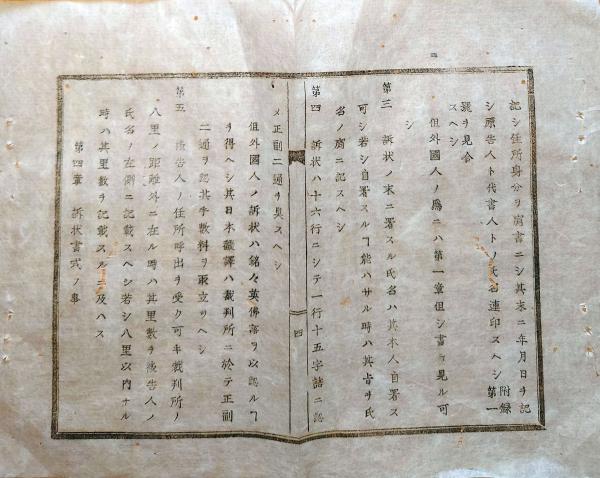 記シ住所身分ヲ肩書ニシ其末ニ年月日ヲ記
シ原告人ト代書人トノ氏名連印スヘシ附録第一
號ヲ見合
スヘシ
但外國人ノ爲ニハ第一章但シ書ヲ見ル可
第三 訴状ノ末ニ署スル氏名ハ其本人自署ス
可シ若シ自署スルヿ能ハサル時ハ其旨ヲ氏
名ノ肩ニ記スヘシ
第四 訴状ハ十六行ニシテ一行十五字詰ニ認
四
メ正副二通ヲ具スヘシ
但外國人ノ訴状ハ銘々英佛語ヲ以認ルヿ
ヲ得ヘシ其日本飜譯ハ裁判所ニ於テ正副
二通ヲ記其手數料ヲ取立ツヘシ
第五 被告人ノ住所呼出ヲ受ク可キ裁判所ノ
八里ノ距離外ニ在ル時ハ其里數ヲ被告人ノ
氏名ノ左側ニ記載スヘシ若シ八里以内ナル
時ハ其里數ヲ記載スルニ及ハス
第四章 訴状書式ノ事